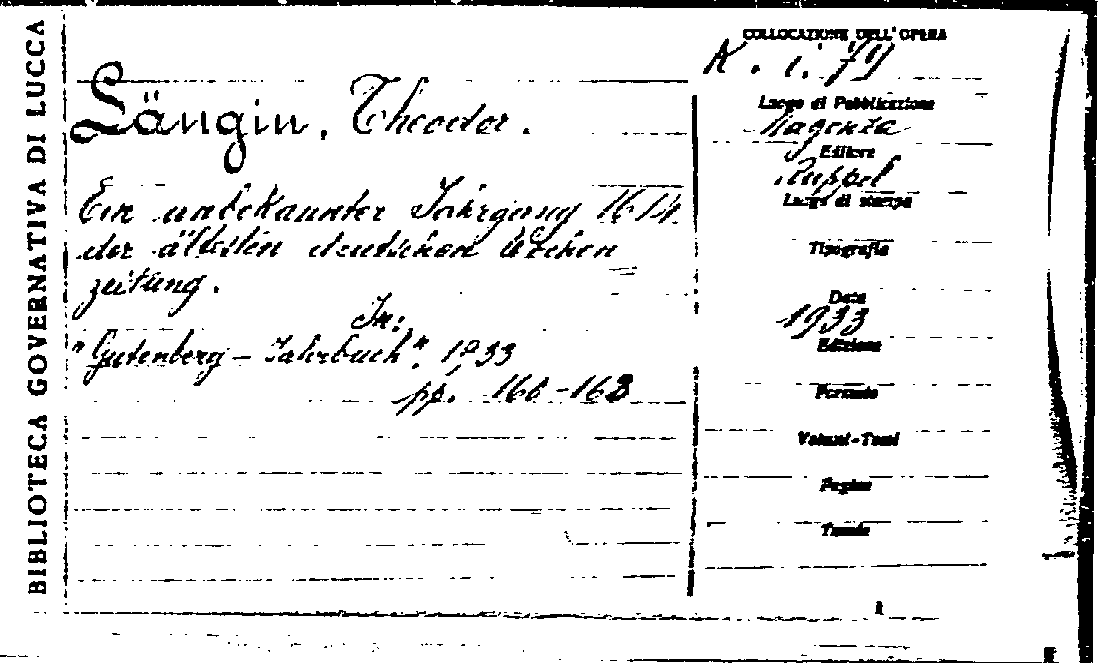 BIBLIOTECA GOVERNATIVA DI LUCCA
Längin, Theodor.
Ein unbekannter Jahrgang 1614
der ältesten deutschen Wochen
zeitung.
In:
"Gutenberg - Jahrbuch". 1933
pp. 160-168
COLLOCAZIONE DELL'OPERA
K. i. 79
Luogo di Pubblicazione
Magonza
Editore
Ruppel
Luogo di stampa
Tipografia
Data
1933
Edizione
Formato
Volumi-Tomi
Pagine
Tavole